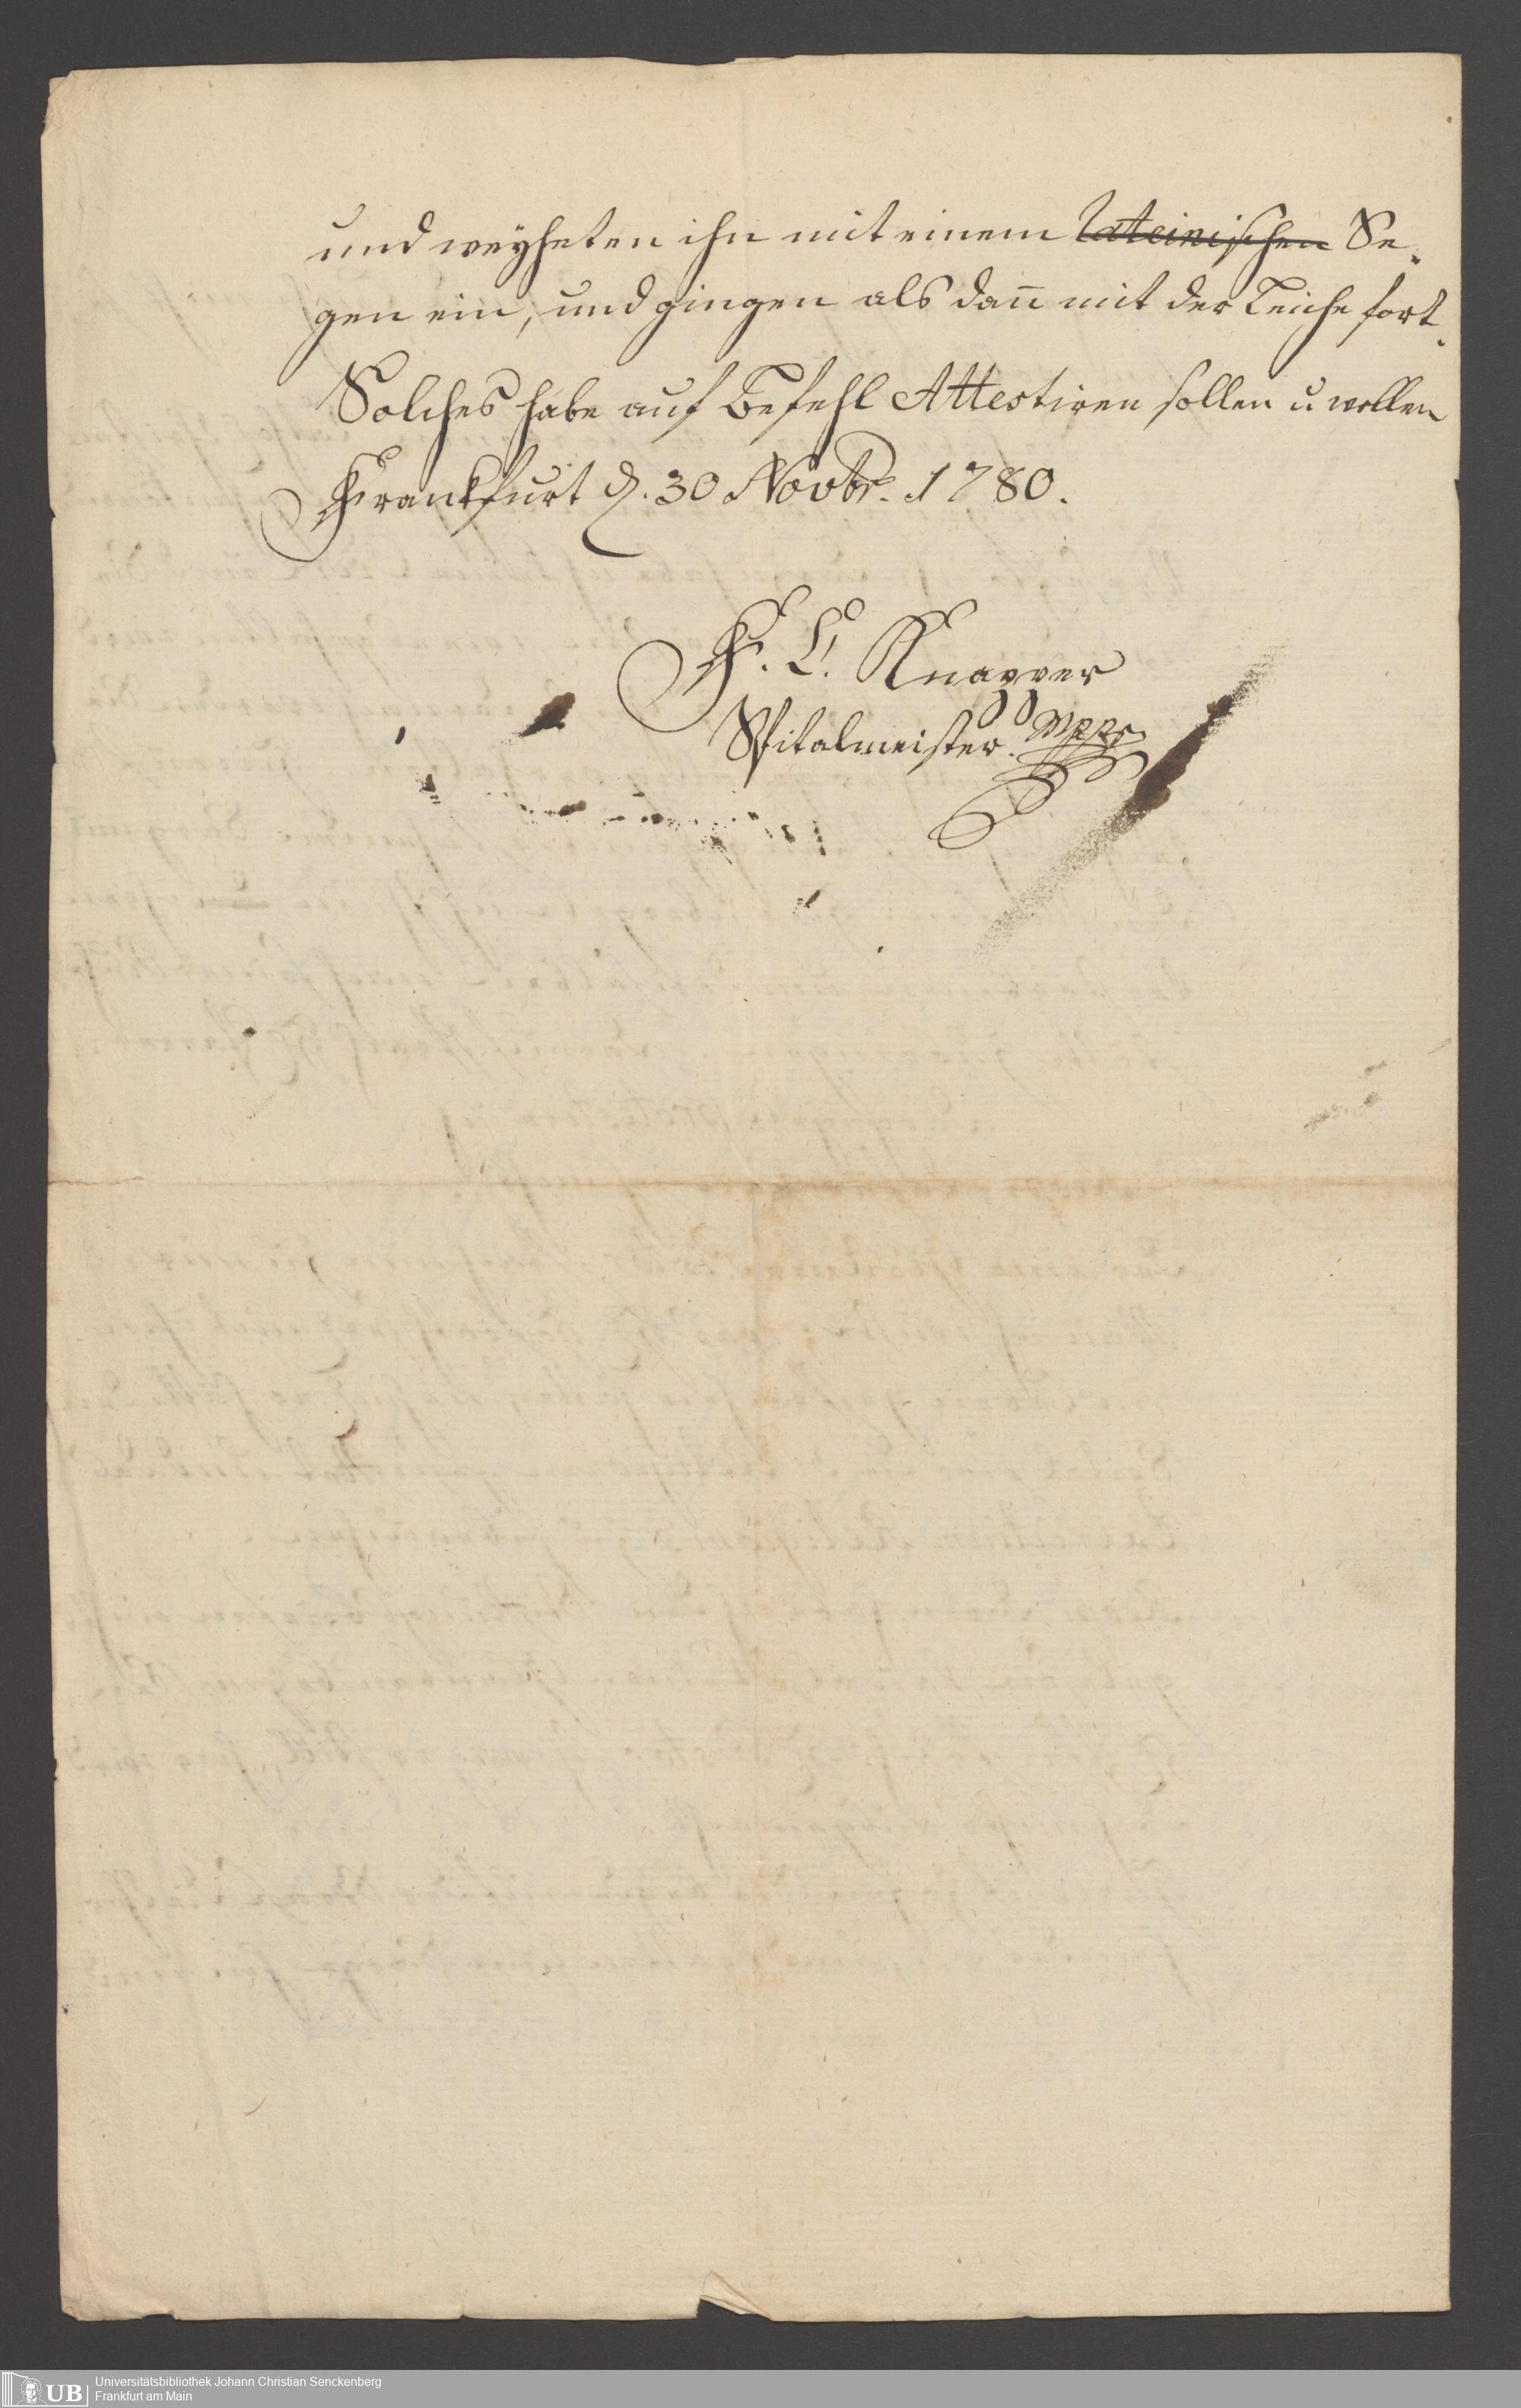 und weyheten ihn mit einem lateinischen Se¬
gen ein, und gingen als dan̄ mit der Leiche fort.
Solches habe auf Befehl Attestiren sollen u wollen
Franckfurt d. 30 Novbr. 1780.
F. L. Knapper
Spitalmeister. Mppr
UB
Universitätsbibliothek Johann Christian Senckenberg
Frankfurt am Main